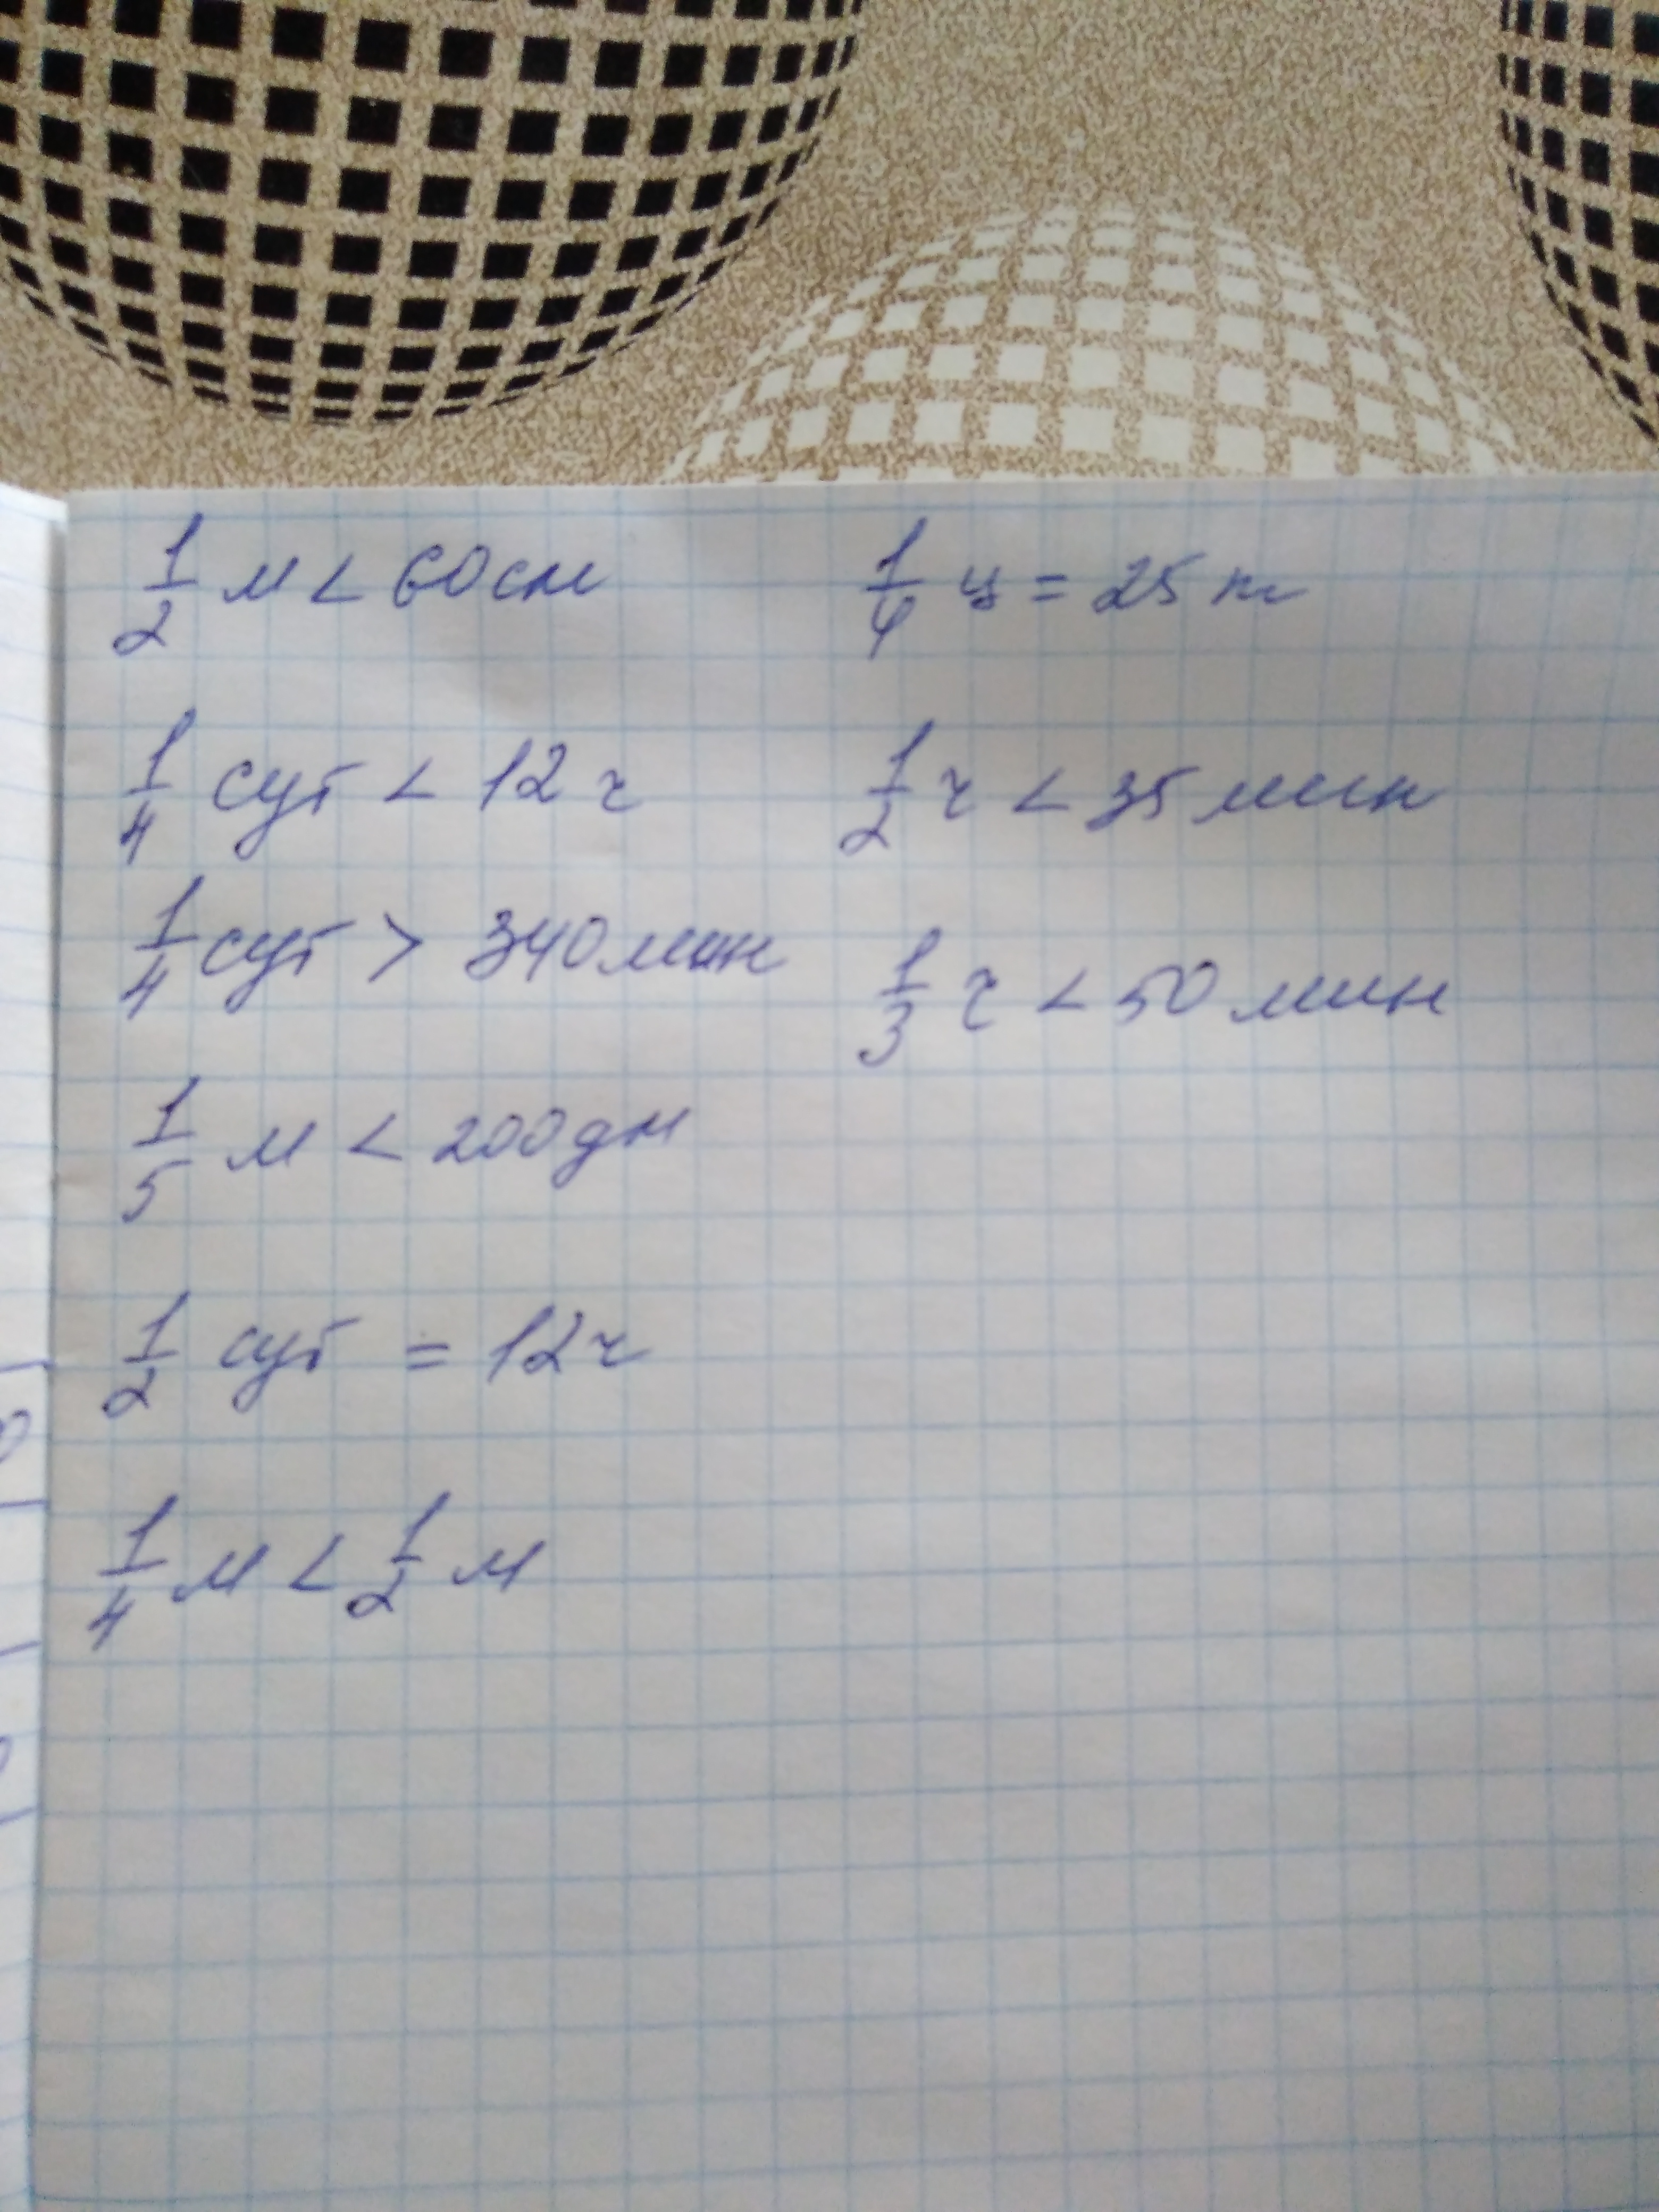 1/2 м < 60 см
1/4 сут < 12 ч
1/4 сут > 340 мин
1/5 м < 200 дм
1/2 сут = 12 ч
1/4 м < 1/2 м
1/4 ц = 25 кг
1/2 ч < 35 мин
1/3 ч < 50 мин